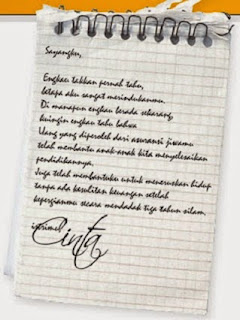 Sayangku,
Engkau takkan pernah tahu,
betapa aku sangat merindukanmu.
Di manapun engkau berada sekarang
kuingin engkau tahu bahwa
Uang yang diperoleh dari asuransi jiwamu
telah membantu anak-anak kita menyelesaikan
pendidikannya.
Juga telah membantuku untuk meneruskan hidup
tanpa ada kesulitan keuangan setelah
kepergianmu secara mendadak tiga tahun silam.
Cinta